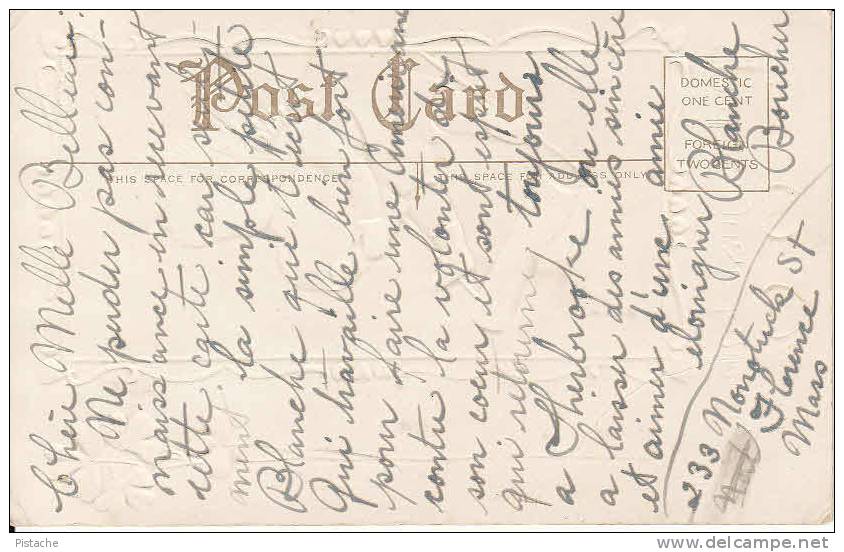 Post Card
THIS SPACE FOR CORRESPONDENCE
THIS SPACE FOR ADDRESS ONLY
DOMESTIC
ONE CENT
FOREIGN
TWO CENTS
Chère Melle
Ne perder pas con-
naissance in recevant
cette carte car
ment la simple petite
Blanche que it
qui travaille bien fort
pour faire une
contre la volonter de
son coeur et son esprit
qui retourne toujours
a Sherbrooke ou elle
a laisser des amies sincère
et aimer d'une amie
eloingner Blanche
Boucher
233 Nonotuck St
Florence
Mass
Pistache
delcampe.net